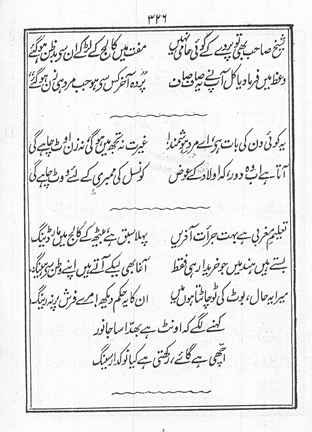 ۳۲۶
شیخ صاحب بھی تو پردے کے کوئی حامی نہیں مفت میں کالج کے لڑکے ان سے بدظن ہو گئے
وعظ میں فرما دیا کل آپ نے یہ صاف صاف پردہ آخر کس سے ہو جب مرد ہی زن ہو گئے
یہ کوئی دن کی بات ہے اے مردِ ہوشمند! غیرت نہ تجھ میں ہوگی نہ زن اوٹ چاہے گی
آتا ہے اب وہ دور، کہ اولاد کے عوض کونسل کی ممبری کے لئے ووٹ چاہے گی
تعلیمِ مغربی ہے بہت جرأت آفریں پہلا سبق ہے بیٹھ کے کالج میں مار ڈینگ
بستے ہیں ہند میں جو خریدار ہی فقط آغا بھی لیکے آتے ہیں اپنے وطن سے ہینگ
میرا یہ حال، بوٹ کی ٹو چاٹتا ہوں میں ان کا یہ حکم دیکھ! مرے فرش پر نہ رینگ
کہنے لگے کہ اونٹ ہے بھدّا سا جانور
اچھی ہے گائے، رکھتی ہے کیا نوکدار سینگ